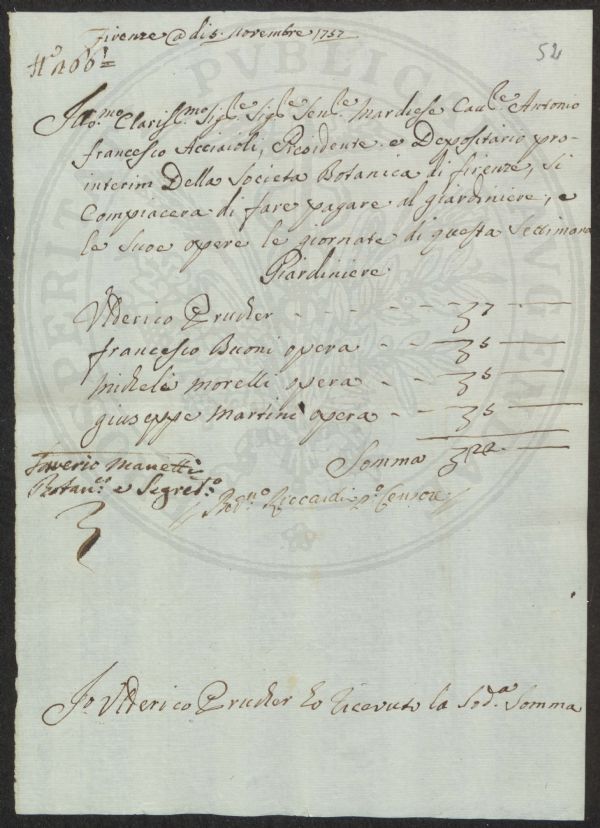 Firenze @ di 5. Novembre 1757
52
Ill.mo Clariss.mo Sig.re Sig.re Sen.re Marchese Cav.re Antonio
francesco Acciaioli, Presidente e Depositario pro
interim Della Società Botanica di firenze, si
Compiacera di fare pagare al giardiniere, e
le Sue opere le giornate di questa Settimana
Giardiniere
Ulderico Prucker
francesco Buoni opera
Michele Morelli opera
giuseppe Martini opera
Somma
Saverio Manetti
Botan.co e Segret.o
Riccardi P.o Censore
Io Ulderico Prucker ho ricevuto la Sod.a Somma
PUBLICÆ
PROSPERITATI